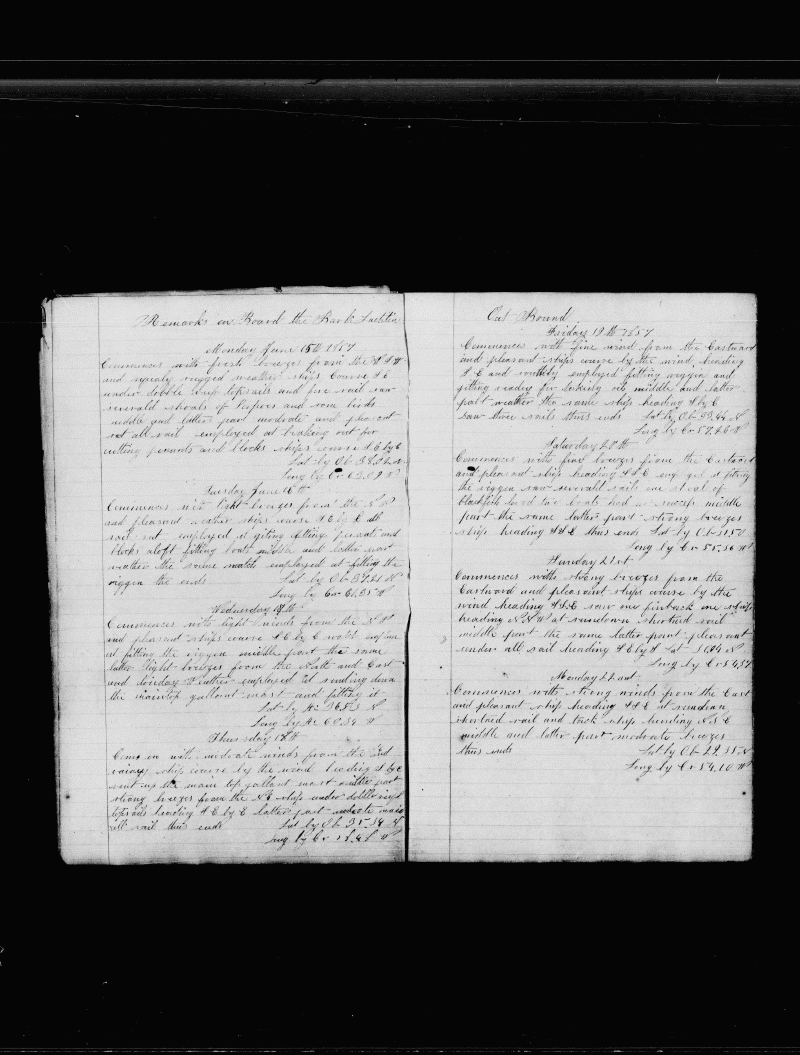 Remarks on Board the Bark
Monday June 15th 1857
Commences with fresh breezes from the
and rugged weather ships Course S E
under dobble reep topsails and fore sail saw
severald shoals of and som birds
middle and latter part modrate and pleasant
set all sail employed at braking out for
cutting penants and blocks ships course S E by E
Lat by Ob 38.02 N
Long by Cr 63.02 W
Tuesday June 16th
Commences with light breezes from the N W
and pleasant weather ships course S E by E all
sail set employed at giting cutting penants and
blocks aloft fitting boats middle and latter part
weather the same watch employed at fitting the
riggen ths ends Lat by Ob 37.21 N
Long by Cr 61.35 W
Wednesday 17th
Commences with light winds from the N W
and pleasant ships course S E by E watch employed
at fitting the riggen middle part the same
latter light breezes from the North and East
and Weather employed at sending down
the maintop gallant mast and fitting it
Lat by Ac 36.53 N
Long by Ac 60.34 W
Thursday 18th
Comes in with modrate winds from the
ships course by the wind heading S by E
sent up the main top gallant mast middle part
strong breezes from the N E ships under dobble reep
topsails heading S E by E latter part modrate made
all sail thus ends Lat by Ob 35.34 N
Long by Cr W
Out Bound
Friday 19th 1857
Commences with fine wind from the Eastward
and pleasant ships course by the wind heading
S E and employed fitting riggen and
gitting readey for middle and latter
part weather the same ships heading S by E
saw three sails thus ends Lat by Ob 33.44 N
Long by Cr 57.26 W
Saturday 20th
Commences with fine breezes from the Eastward
and pleasant ship heading S S E at fiting
the riggen saw severald sail one shoal of
blackfish boats had no success middle
part the same latter part strong breezes
ship heading S S E thus ends Lat by Ob 31.57
Long by Cr 55.36 W
Sunday 21st
Commences with strong breezes from the
Eastward and pleasant ships course by the
wind heading S S E saw one finback one ship
heading N N W at sundown shortend sail
middle part the same latter part pleasant
under all sail heading S E by S Lat 31.04 N
Long by Cr 54.37
Monday 22nd
Commences with strong winds from the East
and pleasant ship heading S S E at sundown
shortend sail and tack ship heading N E
middle and latter part modrate breezes
thus ends Lat by Ob 29.35 N
Long by Cr 54.10 W